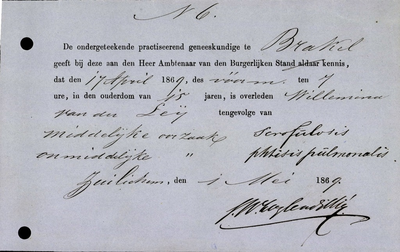 N 6.
De ondergeteekende practiserend geneeskundige te Brakel
geeft bij deze aan den Heer Ambtenaar van den Burgerlijken Stand aldaar kennis,
dat den 17 April 1869, des voorm. ten 7
ure, in den ouderdom van jaren, is overleden Willemina
van der Leij tengevolge van
middelijke oorzaak Scrofulosis
onmiddelijke " phtisis pulmonalis
Zuilichem, den 1 Mei 1869.